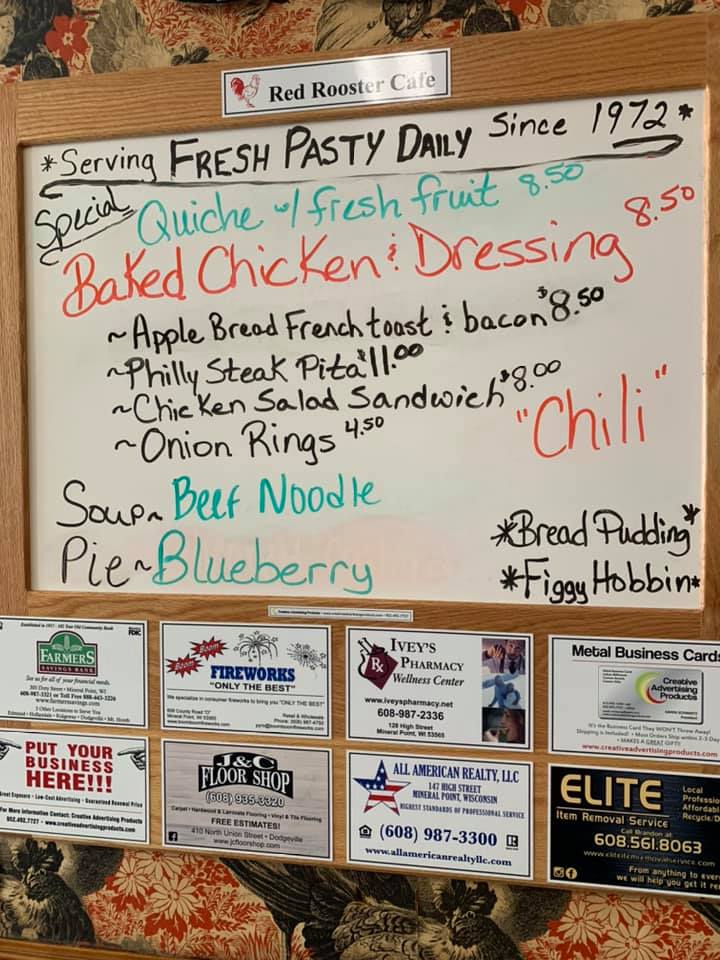 Red Rooster Cafe
*Serving FRESH PASTY DAILY Since 1972*
Special Quiche w/ fresh fruit 8.50
Baked Chicken & Dressing 8.50
~Apple Bread French toast & bacon $8.50
~Philly Steak Pita $11.00
~Chicken Salad Sandwich $8.00
~Onion Rings 4.50
"Chili"
Soup~ Beef Noodle
Pie~Blueberry
*Bread Pudding*
*Figgy Hobbin*
FARMERS
SAVINGS BANK
See us for all of your financial needs.
305 Doty Street • Mineral Point, WI
608-987-3321 or Toll Free 888-443-3226
www.farmerssavings.com
FDIC
Boom Boom
FIREWORKS
"ONLY THE BEST"
We specialize in consumer fireworks to bring you "ONLY THE BEST"
Mineral Point, WI 53565
Retail & Wholesale
IVEY'S
PHARMACY
Wellness Center
Rx
www.iveyspharmacy.net
608-987-2336
128 High Street
Mineral Point, WI 53565
Metal Business Cards
Creative
Advertising
Products
It's the Business Card They WON'T Throw Away!
Shipping is Included! • Most Orders Ship within 2-3 Day
• MAKES A GREAT GIFT!
www.creativeadvertisingproducts.com
PUT YOUR
BUSINESS
HERE!!!
Great Exposure • Low-Cost Advertising • Guaranteed Renewal Price
For More Information Contact: Creative Advertising Products
952.492.7727 • www.creativeadvertisingproducts.com
J&C
FLOOR SHOP
(608) 935-3320
Carpet • Hardwood & Laminate Flooring • Vinyl & Tile Flooring
FREE ESTIMATES!
410 North Union Street • Dodgeville
www.jcfloorshop.com
ALL AMERICAN REALTY, LLC
147 HIGH STREET
MINERAL POINT, WISCONSIN
HIGHEST STANDARDS OF PROFESSIONAL SERVICE
(608) 987-3300
www.allamericanrealtyllc.com
ELITE
Item Removal Service
Call Brandon at
608.561.8063
www.eliteitemremovalservice.com
Local
Professio
Affordab
Recycle/D
From anything to ever
we will help you get it re